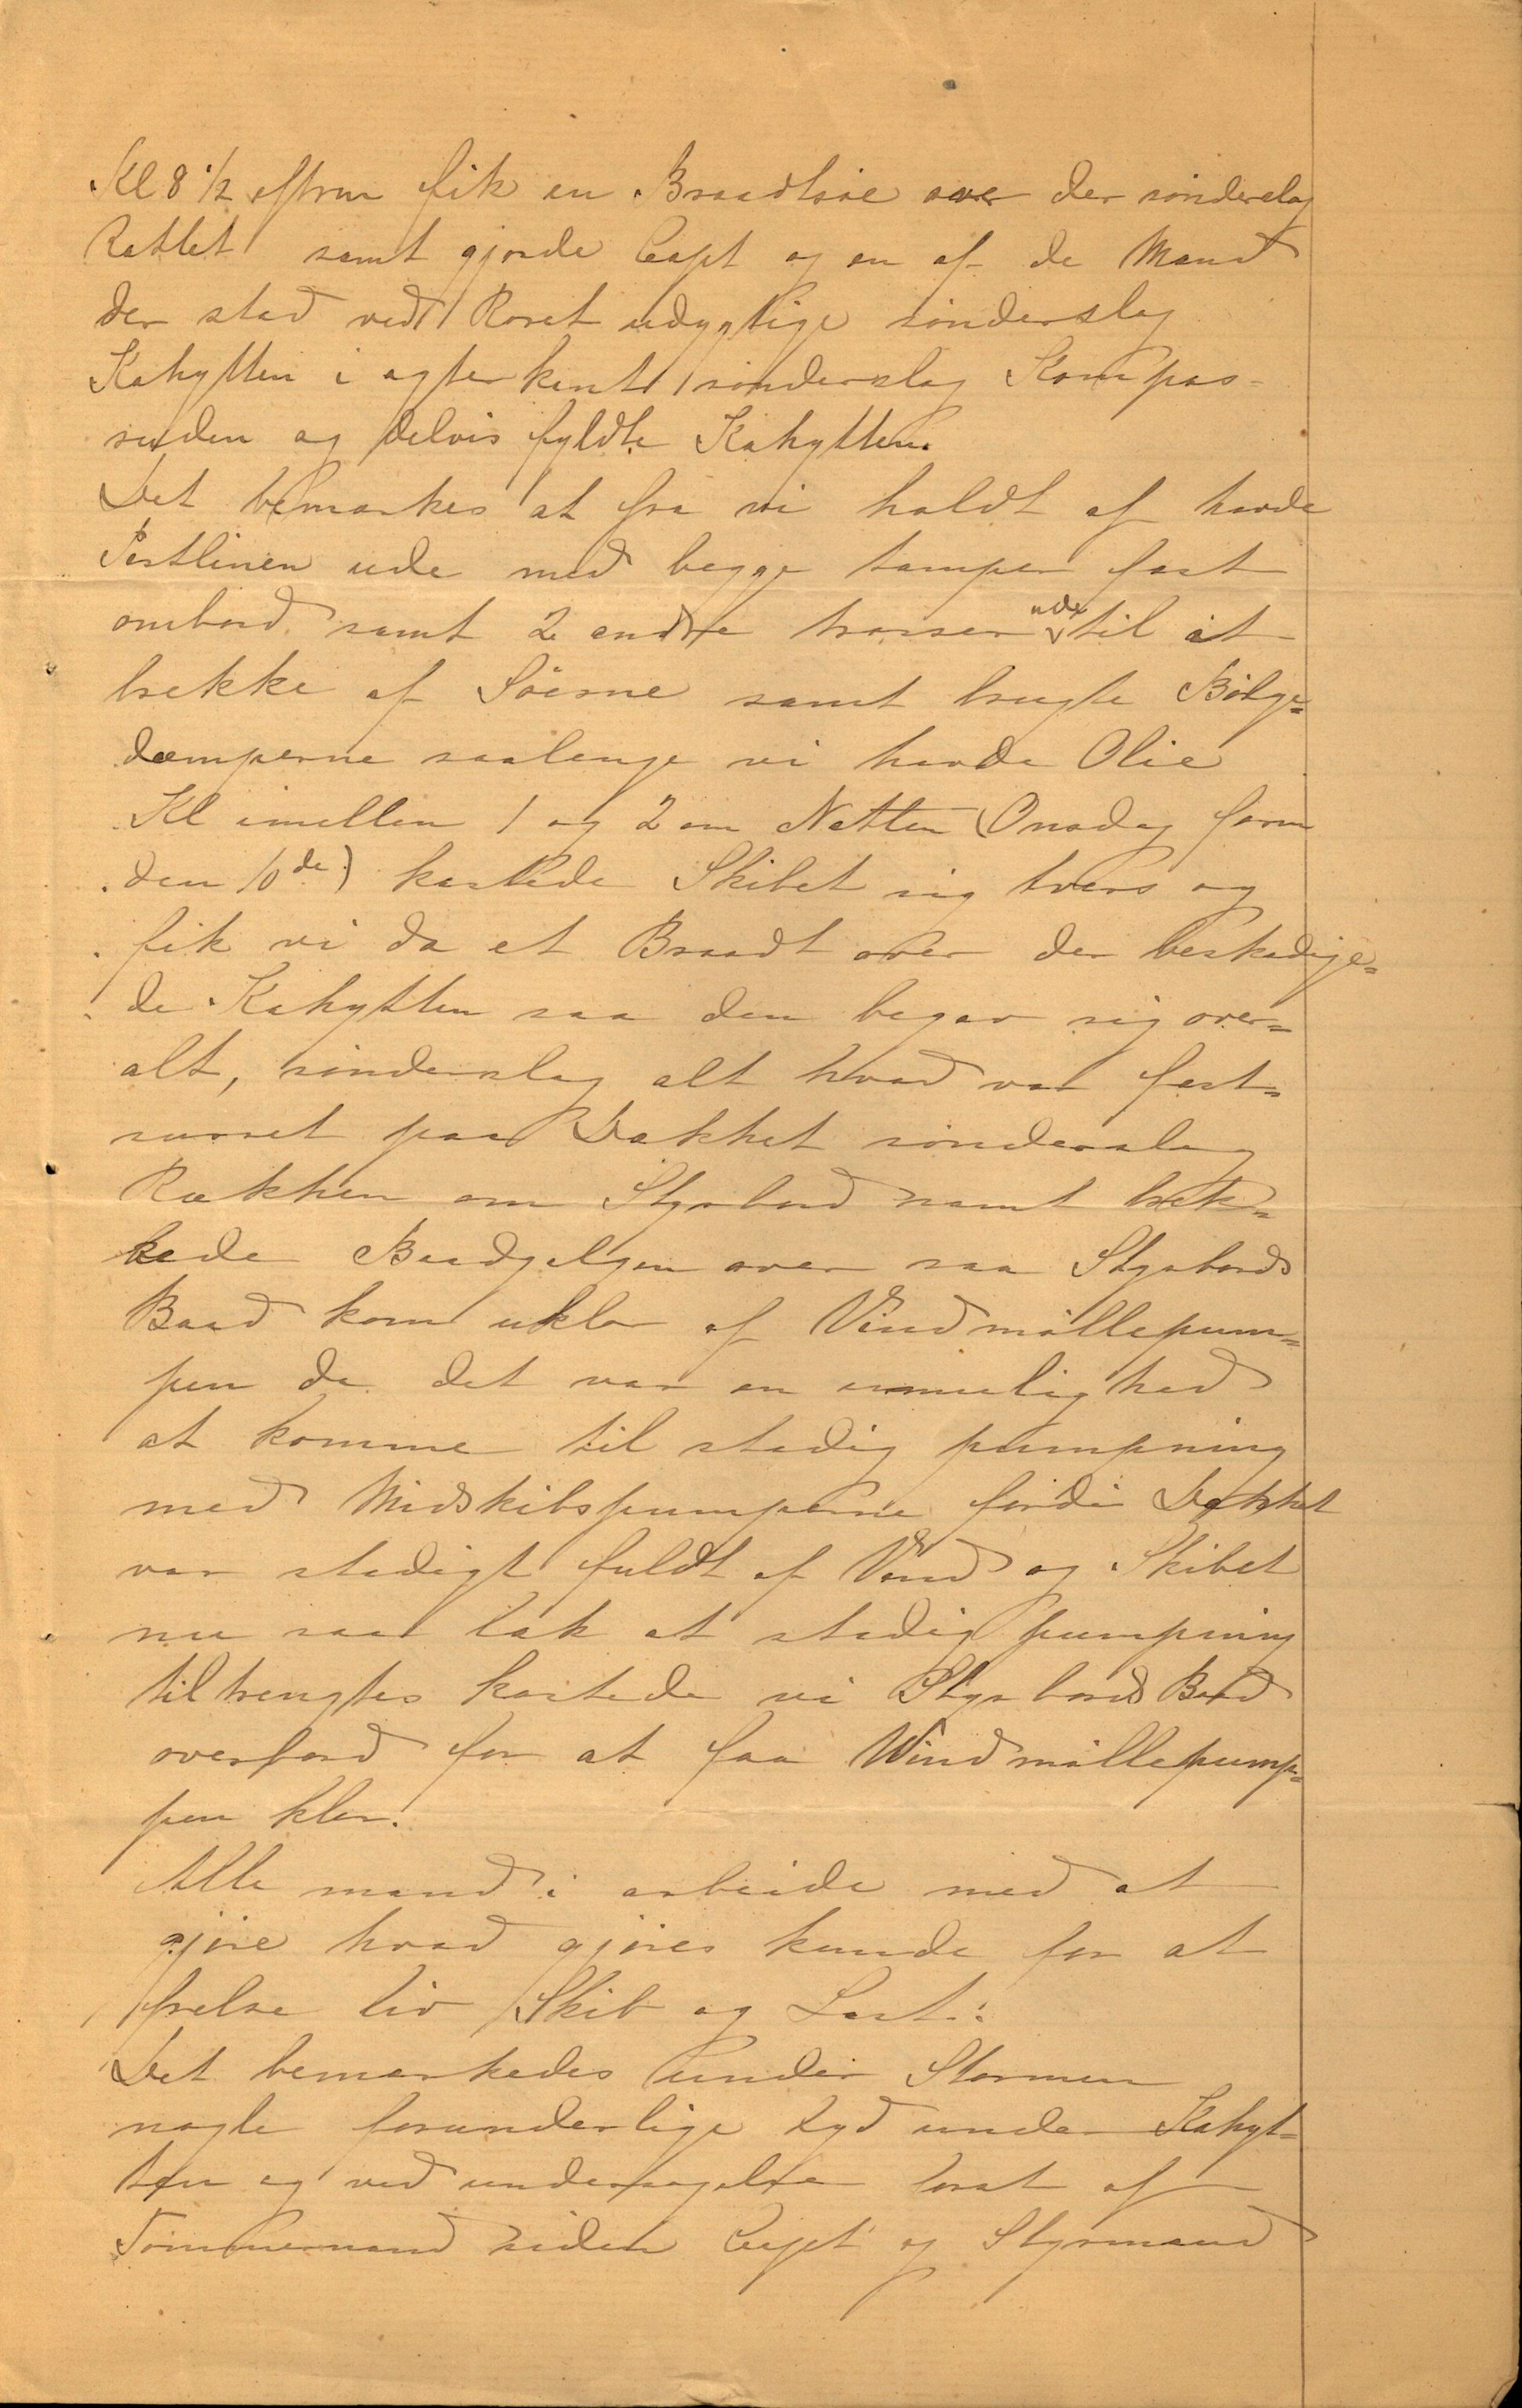 Kl 8 1/2 eftrm fik en Braadtsöe over der sönderslog
Rattet samt gjorde Capt og en af de Mand
der stod ved Roret udygtige sönderslog
Kahytten i agterkent sönderslog Kompas-
ruden og delvis fyldte Kahytten.
Det bemærkes at fra vi holdt af havde
Pertlinen ude med begge tamper fast
ombord samt 2 andre trosser ude til at
brække af Söerne samt brugte Bölge=
dæmperne saalenge vi havde Olie
Kl imellem 1 og 2 om Natten (Onsdag form
den 10de) kastede Skibet sig tvers og
fik vi da et Braadt over der beskadige=
de Kahytten saa den begav sig over=
alt, sönderslog alt hvad var fast=
surret paa Dækket sönderslog
Rækken om Styrbord samt bræk=
kede Baadgalgen over saa Styrbords
Baad kom uklar af Vindmöllepum=
pen da det var en umulighed
at komme til stadig pumpning
med Midskibspumperne fordi Dækket
var stadigt fuldt af Vand og Skibet
nu saa læk at stadig pumpning
tiltrengtes kastede vi Styrbords Baad
overbord for at faa Windmöllepump=
pen klar.
Alle mand i arbeide med at
gjöre hvad gjöres kunde for at
frelse Liv Skib og Last:
Det bemærkedes under Stormen
nogle forunderlige Lyd under Kahyt=
ten og ved undersögelse först af
Tömmermand siden Capt og Styrmand